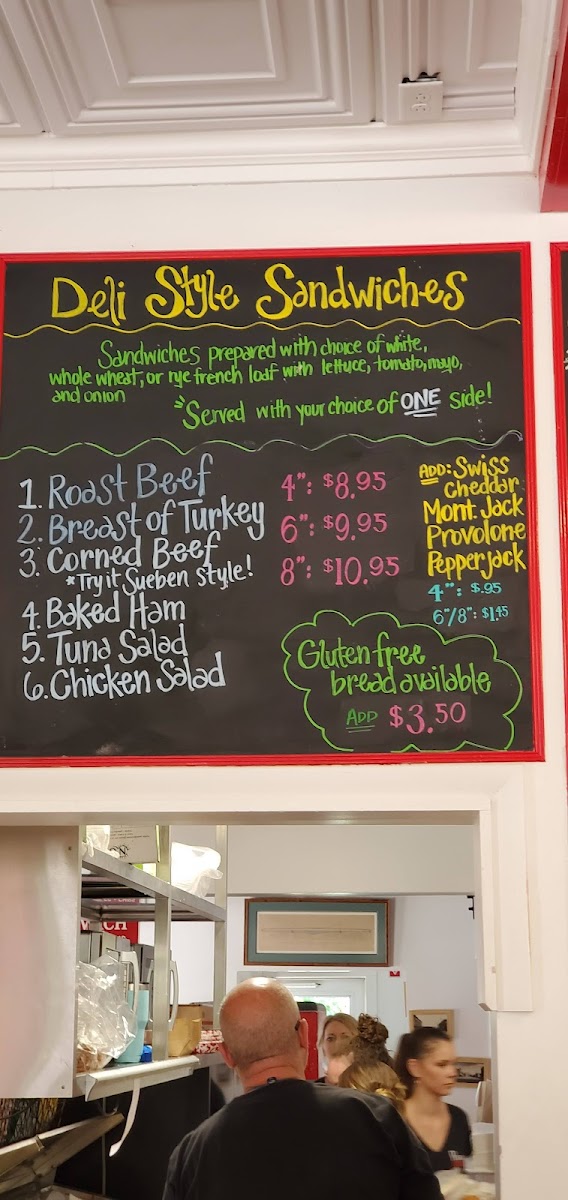 Deli Style Sandwiches
Sandwiches prepared with choice of white,
whole wheat, or rye french loaf with lettuce, tomato, mayo,
and onion
"Served with your choice of ONE side!
1. Roast Beef
2. Breast of Turkey
3. Corned Beef
*Try it Sueben Style!
4. Baked Ham
5. Tuna Salad
6. Chicken Salad
4": $8.95
6": $9.95
8": $10.95
ADD: Swiss
Cheddar
Mont. Jack
Provolone
Pepperjack
4": $.95
6"/8": $1.45
Gluten free
bread available
ADD $3.50